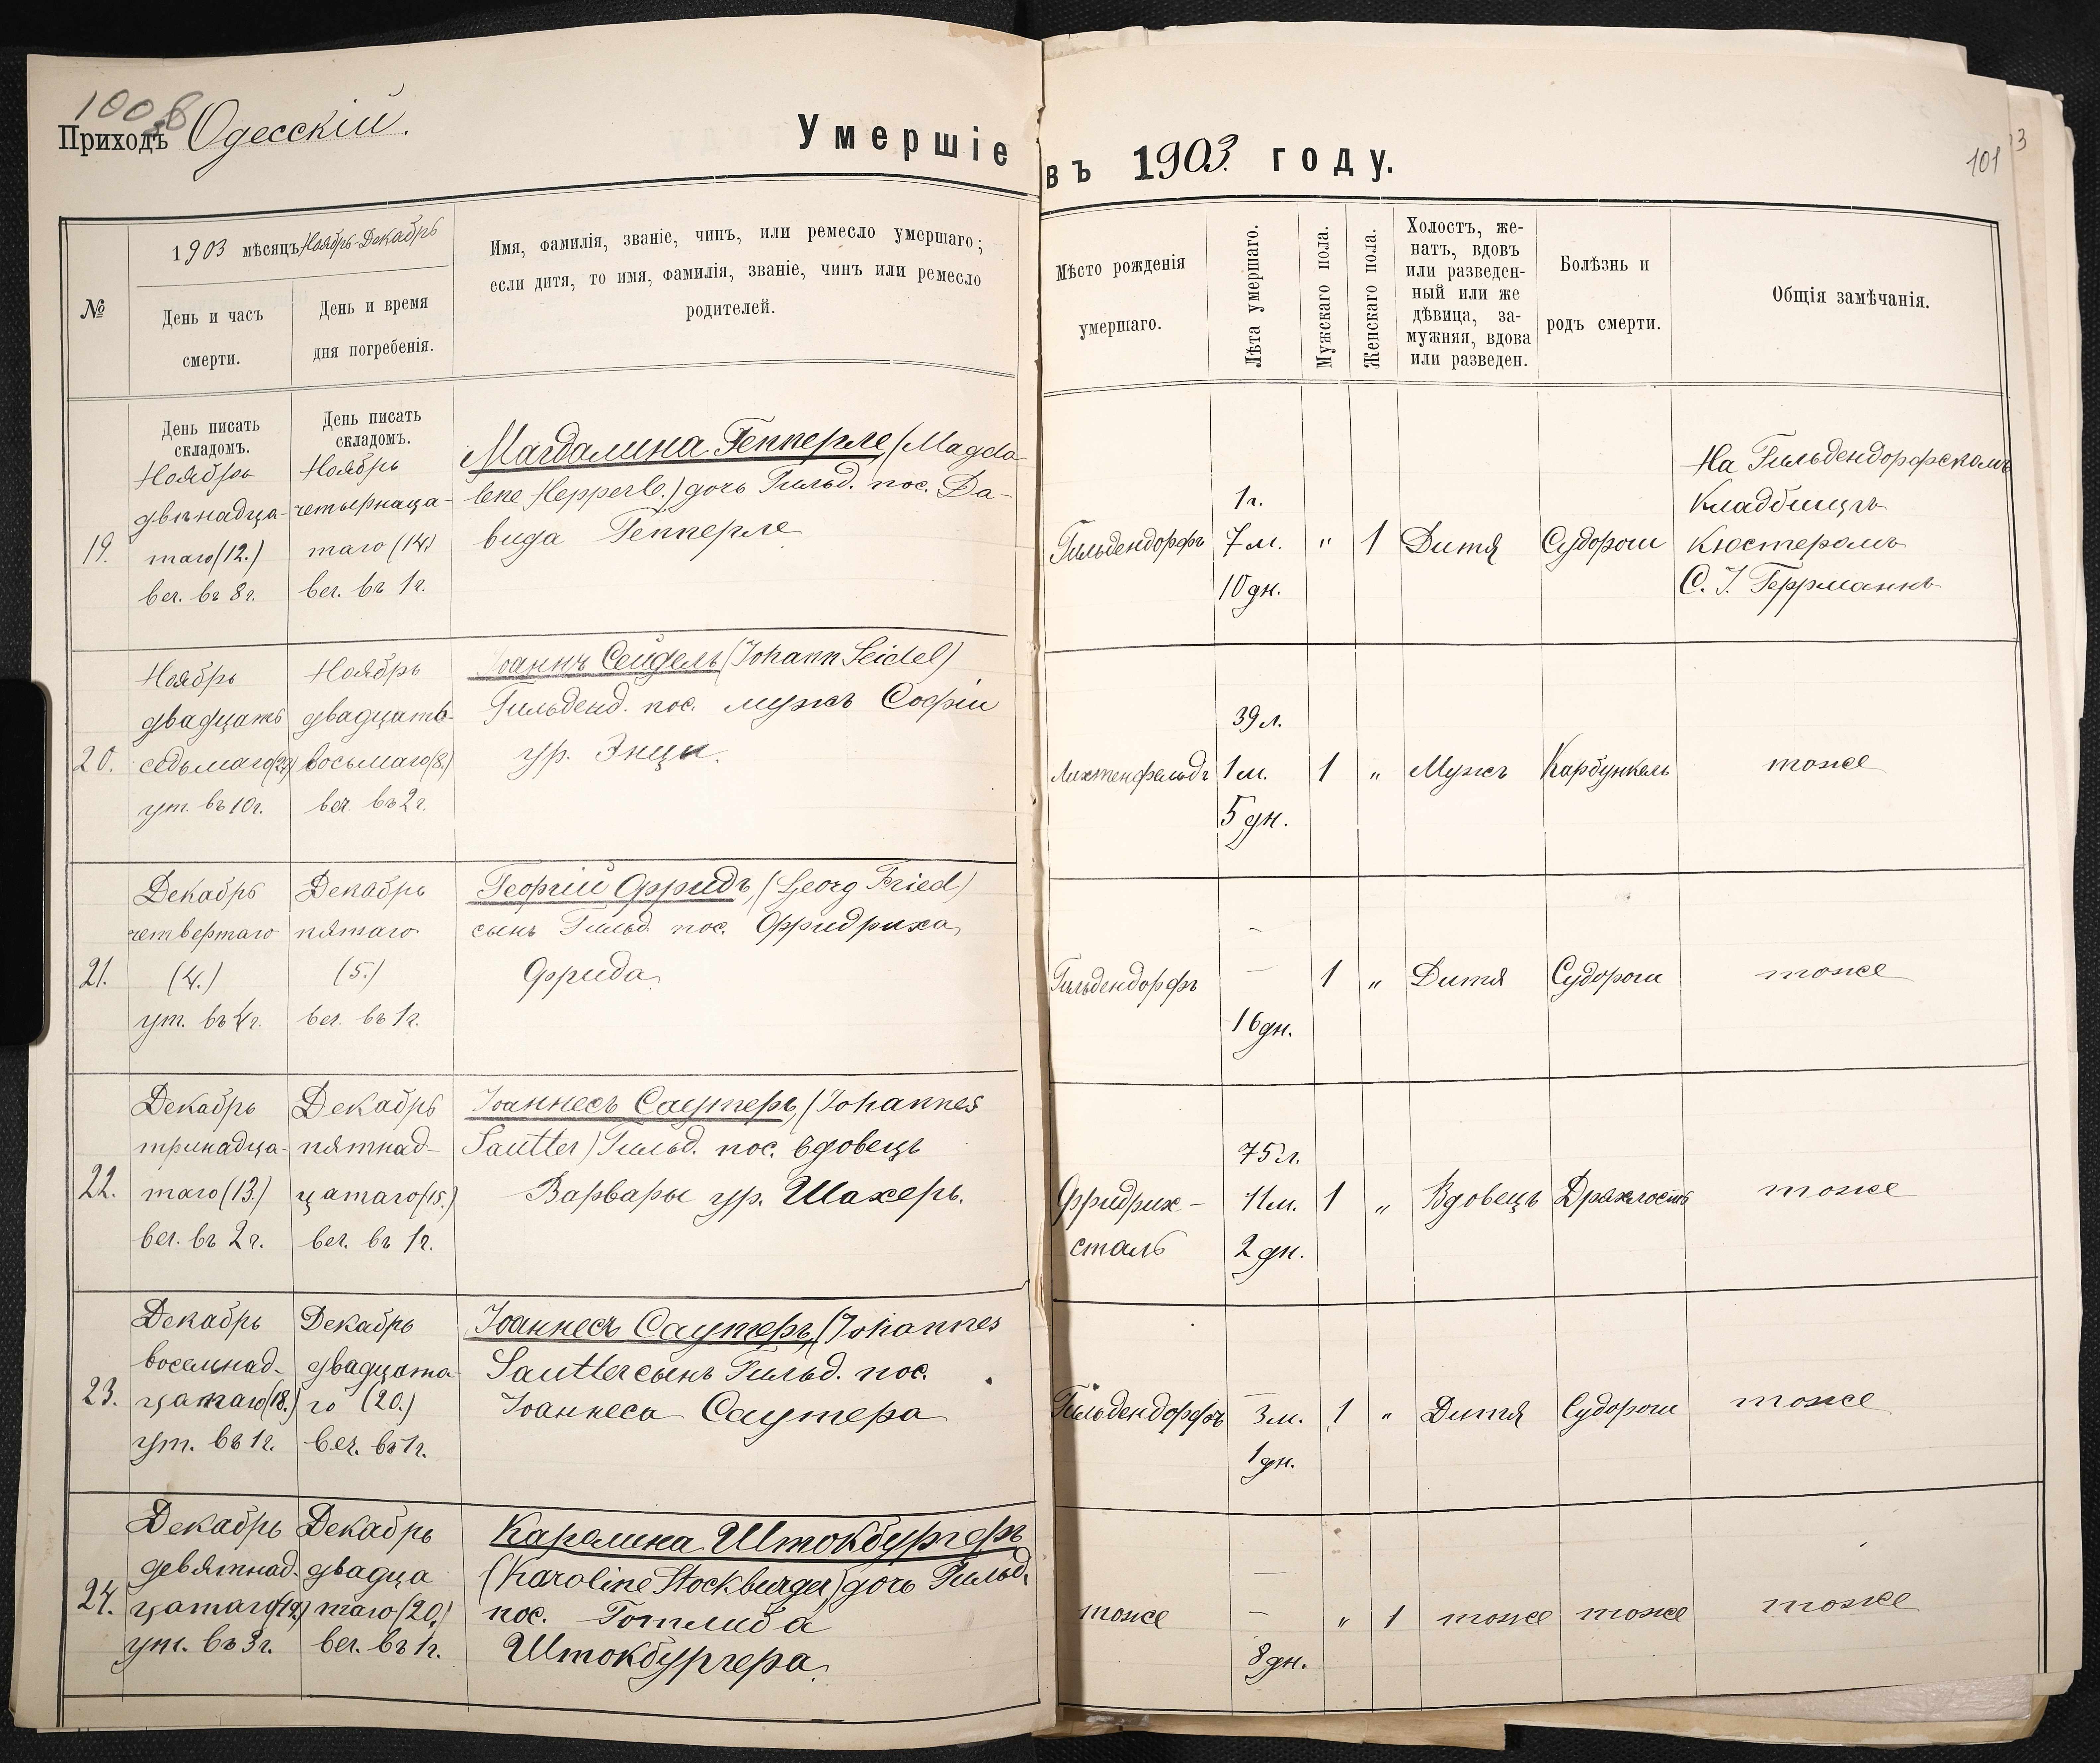 1008
Приходъ Одесскій.
Умершіе
въ 1903. году.
101
№
1903 мѣсяцъ Ноябрь-Декабрь
День и часъ
смерти.
День и время
дня погребенія.
Имя, фамилія, званіе, чинъ, или ремесло умершаго;
если дитя, то имя, фамилія, званіе, чинъ или ремесло
родителей.
Мѣсто рожденія
умершаго.
Лѣта умершаго.
Мужскаго пола.
Женскаго пола.
Холостъ, же-
натъ, вдовъ
или разведен-
ный или же
дѣвица, за-
мужняя, вдова
или разведен.
Болѣзнь и
родъ смерти.
Общія замѣчанія.
День писать
складомъ.
День писать
складомъ.
19.
Ноябрь
двѣнадца-
таго (12.)
веч. въ 8 ч.
Ноябрь
четырнаца-
таго (14)
веч. въ 1 ч.
Магдалина Гепперле, (Magda-
lene Hepperle.) дочь Гильд. пос. Да-
вида Гепперле
Гильдендорфъ
1 г.
7 м.
10 дн.
"
1
Дитя
Судороги
На Гильдендорфскомъ
Кладбищѣ
Кюстеромъ
С. І. Геррманнъ
20.
Ноябрь
двадцать
седьмаго (27)
ут. въ 10 ч.
Ноябрь
двадцать
восьмаго (8.)
веч. въ 2 ч.
Іоаннъ Сейдель (Johann Seidel)
Гильденд. пос. мужъ Софіи
ур. Энци.
Лихтенфельдъ
39 л.
1 м.
5 дн.
1
"
Мужъ
Карбункель
тоже
21.
Декабрь
четвертаго
(4.)
ут. въ 4 ч.
Декабрь
пятаго
(5.)
веч. въ 1 ч.
Георгій Фридъ, (Georg Fried)
сынъ Гильд. пос. Фридриха
Фрида
Гильдендорфъ
—
—
16 дн.
1
"
Дитя
Судороги
тоже
22.
Декабрь
тринадца-
таго (13.)
веч. въ 2 ч.
Декабрь
пятнад-
цатаго (15.)
веч. въ 1 ч.
Іоаннесъ Саутеръ, (Johannes
Sautter) Гильд. пос. вдовецъ
Варвары ур. Шахеръ.
Фридрих-
сталь
75 л.
11 м.
2 дн.
1
"
Вдовецъ
Дряхлость
тоже
23.
Декабрь
восемнад-
цатаго (18.)
ут. въ 1 ч.
Декабрь
двадцата-
го (20.)
веч. въ 1 ч.
Іоаннесъ Саутеръ, (Johannes
Sautter сынъ Гильд. пос.
Іоаннеса Саутера
Гильдендорфъ
—
3 м.
1 дн.
1
"
Дитя
Судороги
тоже
24.
Декабрь
девятнад-
цатаго (19.)
ут. въ 3 ч.
Декабрь
двадца
таго (20.)
веч. въ 1 ч.
Каролина Штокбургеръ
(Karoline Stockburger) дочь Гильд.
пос. Готлиба
Штокбургера.
тоже
—
—
8 дн.
"
1
тоже
тоже
тоже